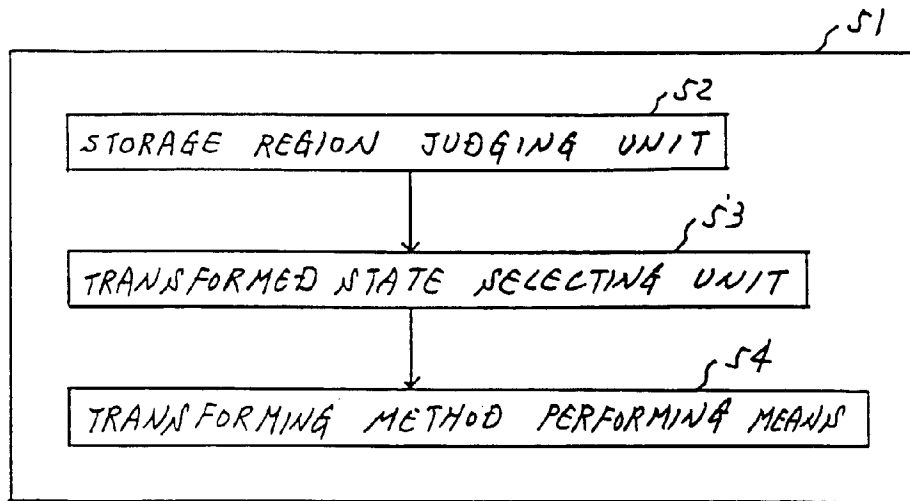 51
52
STORAGE REGION JUDGING UNIT
53
TRANSFORMED STATE SELECTING UNIT
54
TRANSFORMING METHOD PERFORMING MEANS